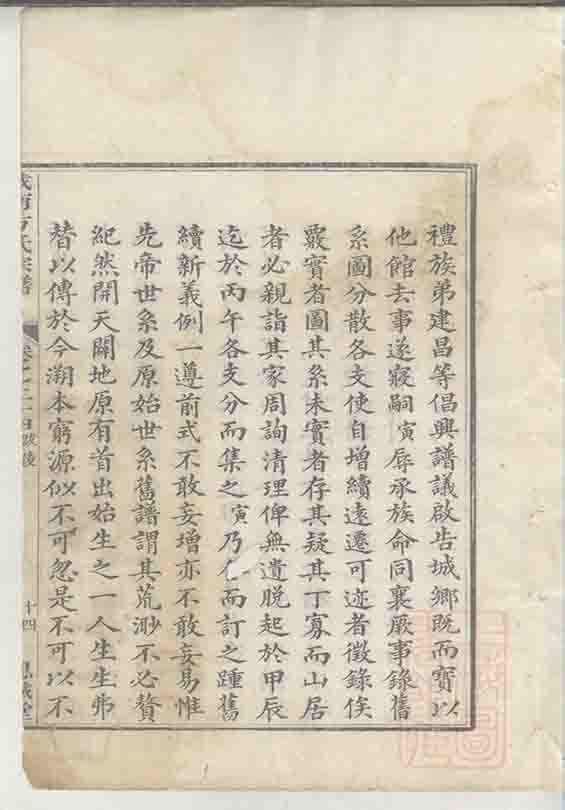 禮族弟建昌等倡興譜議啟告城鄉既而寶以
他館去事遂寢嗣寅辱承族命同襄厥事錄舊
系圖分散各支使自增續遠遷可迹者徵錄俟
覈實者圖其系未實者存其疑其丁寡而山居
者必親詣其家周詢清理俾無遺脱起於甲辰
迄於丙午各支分而集之寅乃仝而訂之踵舊
續新義例一遵前式不敢妄增亦不敢妄易惟
先帝世系及原始世系舊譜謂其荒渺不必贅
紀然開天闢地原有首出始生之一人生生弗
替以傳於今溯本窮源似不可忽是不可以不
方氏宗譜
十四